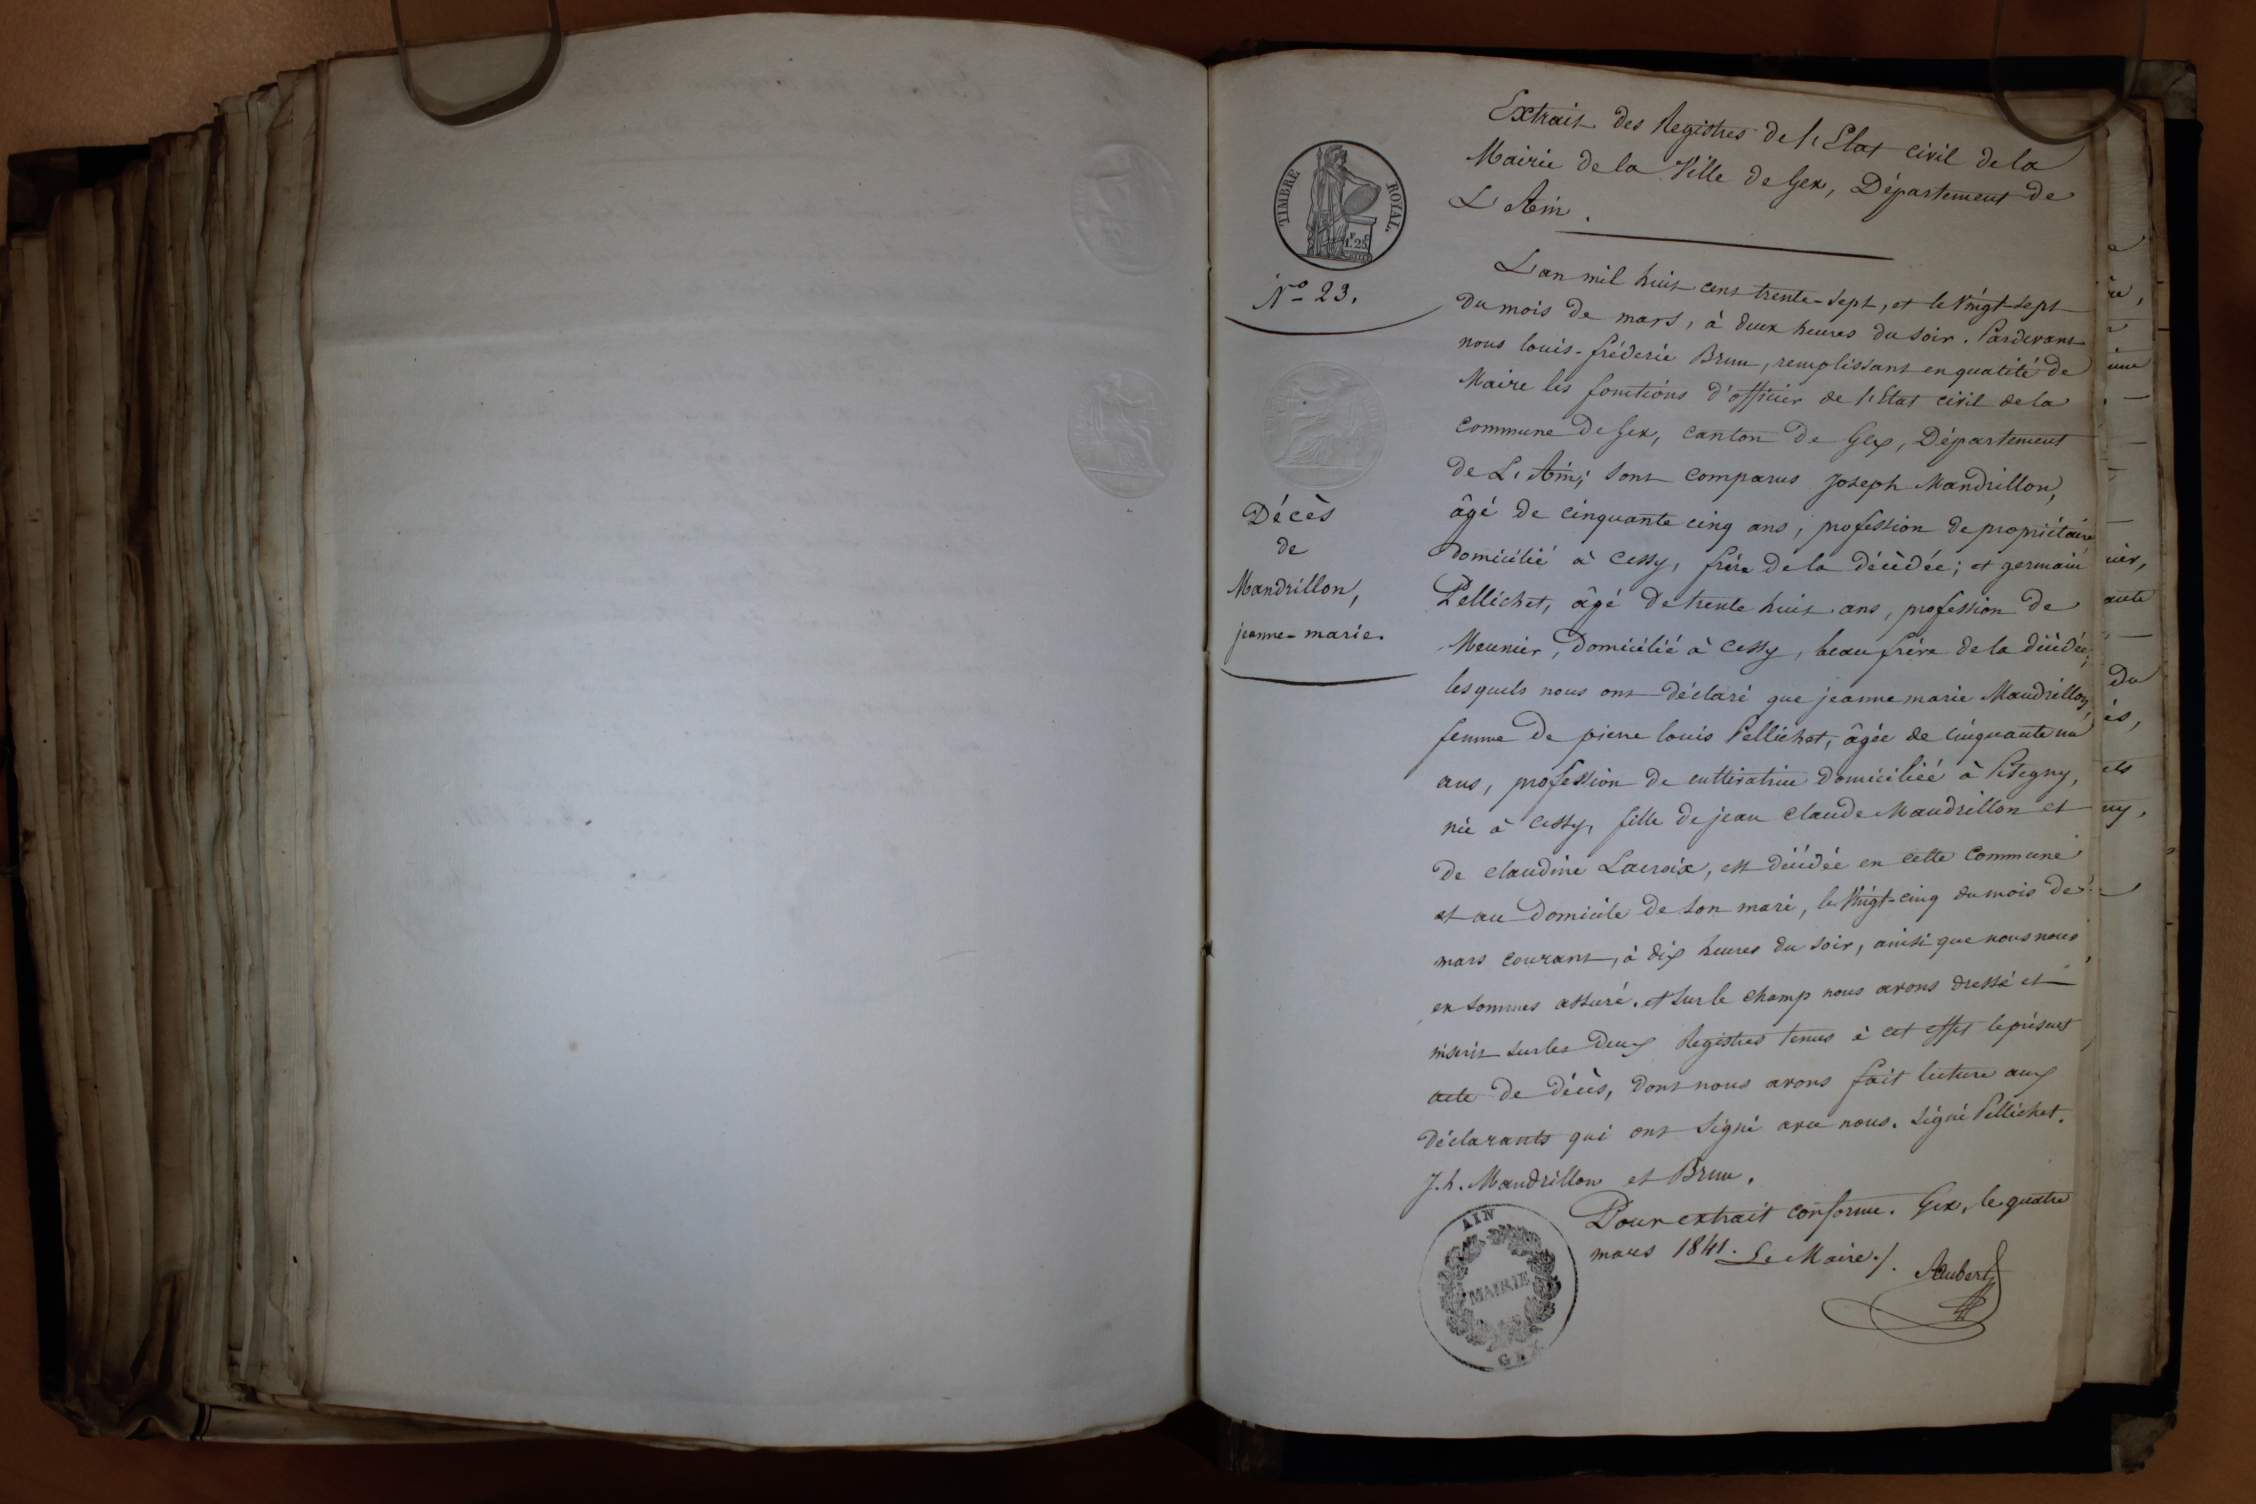 Extrait des Registres de l'Etat civil de la
Mairie de la Ville de Gex, Département de
L'Ain.
TIMBRE ROYAL.
1.F 25.C
N.o 23.
Décès
de
Mandrillon,
jeanne-marie.
L'an mil huit cent trente-sept, et le Vingt-sept
du mois de mars, à deux heures du soir. Pardevant
nous louis-fréderic Brun, remplissant en qualité de
Maire les fonctions d'officier de l'Etat civil de la
commune de Gex, canton de Gex, Département
de L'Ain; sont comparus Joseph Mandrillon,
âgé de cinquante cinq ans, profession de propriétaire
domicilié à Cessy, frère de la décèdée; et germain
Pellichet, âgé de trente huit ans, profession de
Meunier, domicilié à Cessy, beau frère de la décèdée;
lesquels nous ont déclaré que jeanne marie Mandrillon,
femme de pierre louis Pellichet, âgée de cinquante un
ans, profession de cultivatrice domiciliée à Pitegny,
née à Cessy, fille de jean Claude Mandrillon et
de claudine Lacroix, est décédée en cette commune
et au domicile de son mari, le Vingt-cinq du mois de
mars courant, à dix heures du soir, ainsi que nous nous
en sommes assuré. et sur le champ nous avons dressé et
inscrit sur les deux Registres tenus à cet effet le présent
acte de décès, dont nous avons fait lecture aux
déclarants qui ont signé avec nous. signé Pellichet.
J.h. Mandrillon et Brun.
Pour extrait conforme. Gex, le quatre
mars 1841. Le Maire./.
Aubert
AIN
MAIRIE
GEX